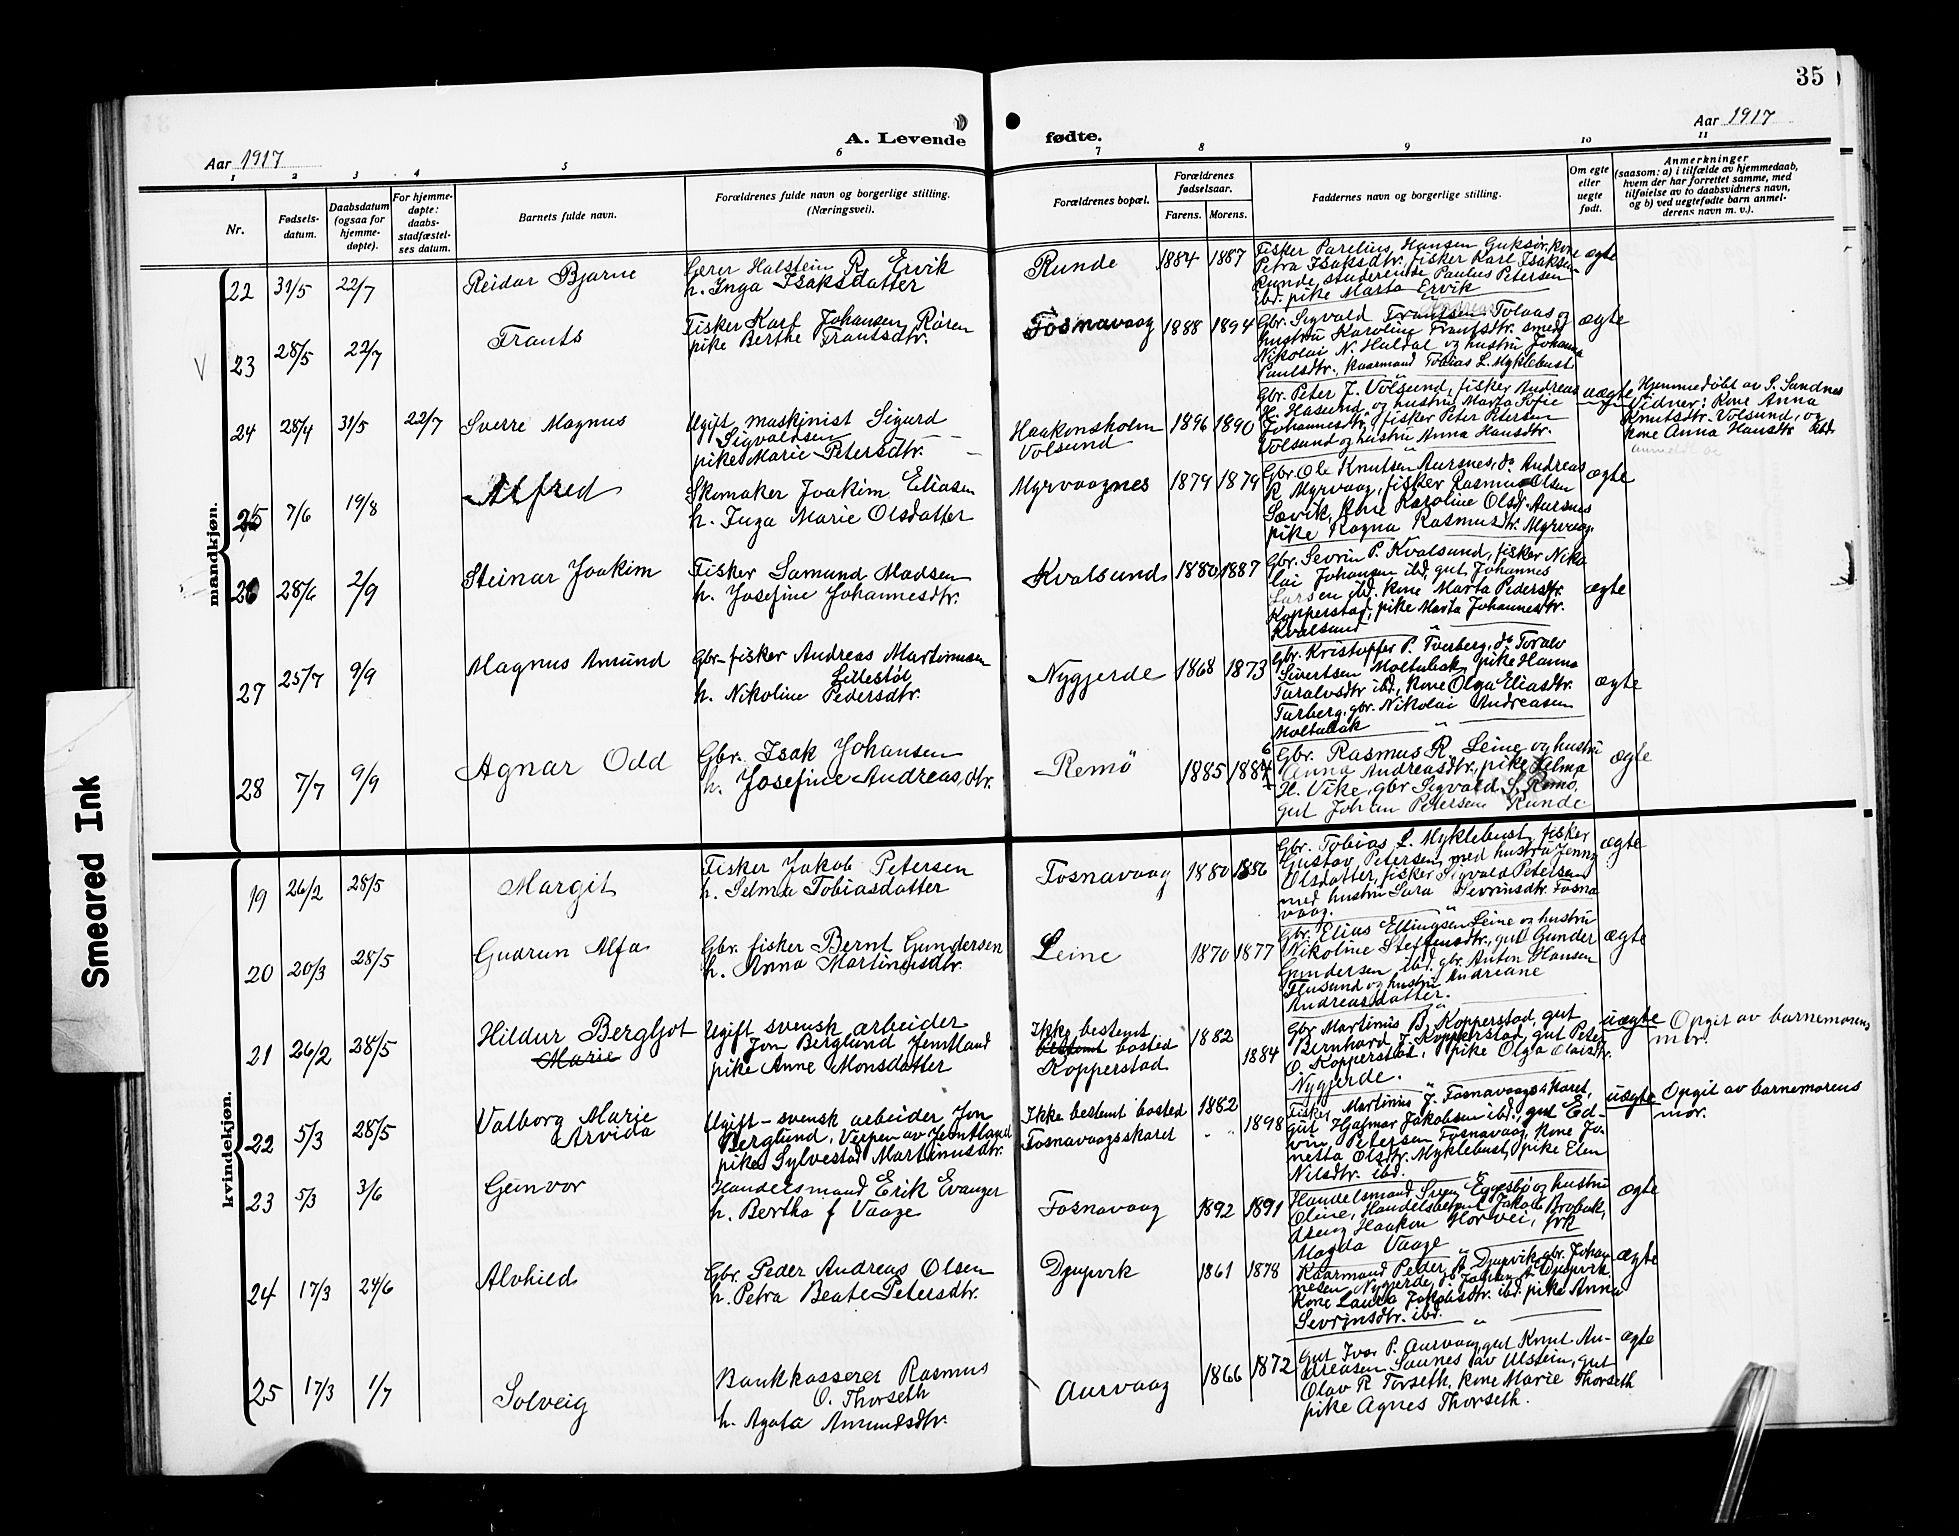 35
Aar 1917
A. Levende
fødte.
Aar 1917
1
2
3
4
5
6
7
8
9
10
11
Nr.
Fødsels-
datum.
Daabsdatum
(ogsaa for
hjemme-
døpte).
For hjemme-
døpte:
daabs-
stadfæstel-
ses datum.
Barnets fulde navn.
Forældrenes fulde navn og borgerlige stilling.
(Næringsvei).
Forældrenes bopæl.
Forældrenes
fødselsaar.
Farens.
Morens.
Faddernes navn og borgerlige stilling.
Om egte
eller
uegte
født.
Anmerkninger
(saasom: a) i tilfælde av hjemmedaab,
hvem der har forrettet samme, med
tilføielse av to daabsvidners navn,
og b) ved uegtefødte barn anmel-
derens navn m. v.).
mandkjøn.
22 31/5 22/7 Reidar Bjarne
Gerer Halstein R. Ervik
h. Inga Isaksdatter
Runde 1884 1887
Fisker Parelius Hansen Guksør, kone
Petra Isaksdtr, fisker Karl Isaksen
Runde, studerende Paulus Petersen
ibd. pike Marta Ervik
ægte
V 23 28/5 22/7 Frants
Fisker Karl Johansen Røren
pike Berthe Frantsdtr.
Fosnavaag 1888 1894
Gbr. Sigvald Tolaas og
hustru Karoline Frantsdtr. smed
Nikolai N. Haldal og hustru Johanna
Paulsdtr., kaarmand Tobias L. Myklebust
ægte
24 28/4 31/5 22/7 Sverre Magnus
Ugift maskinist Sigurd
Sigvaldsen
pike Marie Petersdtr.
Haakonsholm
Volsund
1896 1890
Gbr. Peter J. Volsund, fisker Andreas
H. Hasund og hustru Marta Sofie
Johannesdtr., fisker Peter Petersen
Volsund og hustru Anna Hansdtr.
uægte
Hjemmedøbt av S. Sandnes
Vidner: Kone Anna
Knutsdtr. Volsund, og
kone Anna Hansdtr ibd.
25 7/6 19/8 Alfred
Skomaker Joakim Eliasen
h. Inga Marie Olsdatter
Myrvaagnes 1879 1879
Gbr. Ole Knutsen Aursnes, do Andreas
R. Myrvaag, fisker Rasmus Olsen
Sævik, kone Karoline Olsd. Aursnes
pike Ragna Rasmusdtr. Myrvaag.
ægte
26 28/6 2/9 Steinar Joakim
Fisker Samund Madsen
h. Josefine Johannesdtr.
Kvalsund 1880 1887
Gbr. Sevrin P. Kvalsund, fisker Niko
lai Johansen ibd, gut Johannes
Larsen ibd. kone Marta Pedersdtr.
Kopperstad, pike Marta Johannesdtr.
Kvalsund
ægte
27 25/7 9/9 Magnus Amund
Gbr-fisker Andreas Martinusen
Lillestøl
h. Nikoline Pedersdtr.
Nygjerde 1868 1873
Gbr. Kristoffer P. Tverberg, do Toralv
Sivertsen Moltubak, pike Hanna
Taralvsdtr ibd, kone Olga Eliasdtr.
Tarberg, gbr. Nikolai Andreasen
Moltubak
ægte
28 7/7 9/9 Agnar Odd
Gbr. Isak Johansen
h. Josefine Andreasdtr.
Remö 1885 1884
6
Gbr. Rasmus R. Leine og hustru
Anna Andreasdtr., pike Alma
H. Vike, gbr Sigvald S. Remö,
gut Johan Petersen Runde
ægte
kvindekjøn.
19 26/2 28/5 Margit
Fisker Jakob Petersen
h. Selma Tobiasdatter
Fosnavaag 1880 1886
Gbr. Tobias L. Myklebust, fisker
Gustav Petersen med hustru Jenny
Olsdatter, fisker Sigvald Petersen
med hustru Sara Sevrinsdtr. Fosna
vaag.
ægte
20 20/3 28/5 Gudrun Alfa
Gbr. fisker Bernt Gundersen
h. Anna Martinusdtr.
Leine 1870 1877
Gbr. Elias Ellingsen Leine og hustru
Nikoline Steffensdtr., gut Gunder
Gundersen ibd. gbr. Anton Hansen
Flusund og hustru Andreane
Andreasdatter.
ægte
21 26/2 28/5 Hildur Bergljot
Marie
Ugift svensk arbeider
Jon Berglund Jemtland
pike Anne Monsdatter
Ikke bestemt
bestemt bosted
Kopperstad
1882 1884
Gbr Martinus B. Kopperstad, gut
Bernhard J. Kopperstad, gut Peter
O. Kopperstad, pike Olga Olaisdtr.
Nygjerde.
uægte
Opgit av barnemorens
mor.
22 5/3 28/5 Valborg Marie
Arvida
Ugift - svensk arbeider Jon
Berglund, Verpen av Jemtland
pike Sylvestad Martinusdtr.
Ikke bestemt bosted
Fosnavaagsskaret
1882 1898
Fisker Martinus J. Fosnavaagsskaret,
gut Hjalmar Jakobsen ibd., gut Ed-
vin Petersen Fosnavaag, kone Jo-
netta Olsdtr. Myklebust, pike Elen
Nilsdtr. ibd.
uægte
Opgit av barnemorens
mor.
23 5/3 3/6 Geinvor
Handelsmand Erik Evanger
h. Bertha f Vaage
Fosnavaag 1892 1891
Handelsmand Sven Eggesbø og hustru
Oline, Handelsbetjent Jakob Brobak,
dreng Haakon Horvei, frk
Magda Vaage
ægte
24 17/3 24/6 Alvhild
Gbr. Peder Andreas Olsen
h. Petra Beate Petersdtr.
Djupvik 1861 1878
Kaarmand Peder A. Djupvik, gbr. Johan
nesen Nygjerde, do Johan A. Djupvik
kone Laura Jakobsdtr. ibd. pike Anna
Sevrinsdtr. ibd.
ægte
25 17/3 1/7 Solveig
Bankkasserer Rasmus
O. Thorseth
h. Agata Amundsdtr.
Aurvaag 1866 1872
Gut Ivar P. Aurvaag, gut Knut An-
dreasen Saunes av Ulstein, gut
Olav R Torseth, kone Marie Thorseth
pike Agnes Thorseth.
ægte
Smeared Ink